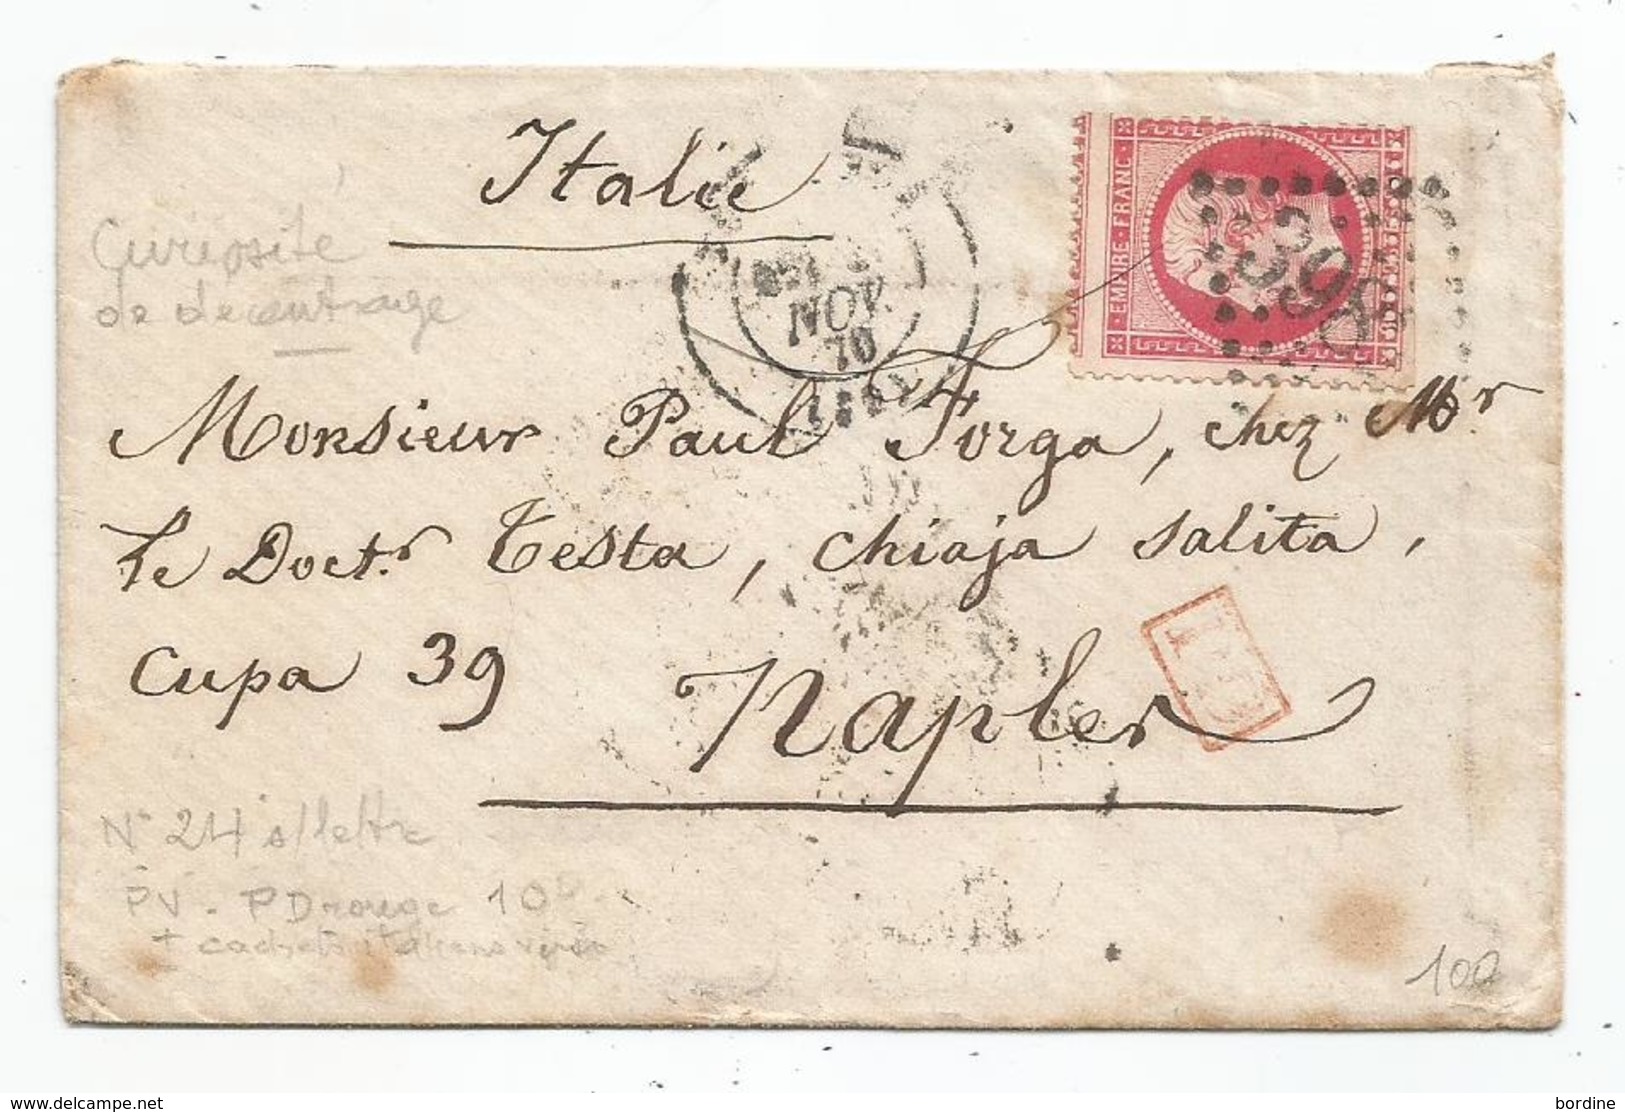 Italie
Curiosité
de décentrage
NOV.
70
EMPIRE·FRANC·
Monsieur Paul Forga, chez Mr
le Doctr. Testa, Chiaja Salita,
Cupa 39
Naples
P.D.
N° 24 s/lettre
PV - PD rouge
+ cachets italiens
100
www.delcampe.net
bordine